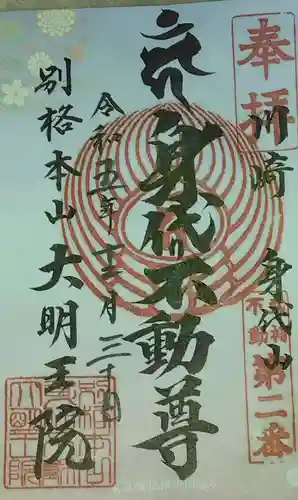 奉拝
川崎 身代山
第二番
身代り不動尊
令和五年十二月三十日
別格本山 大明王院